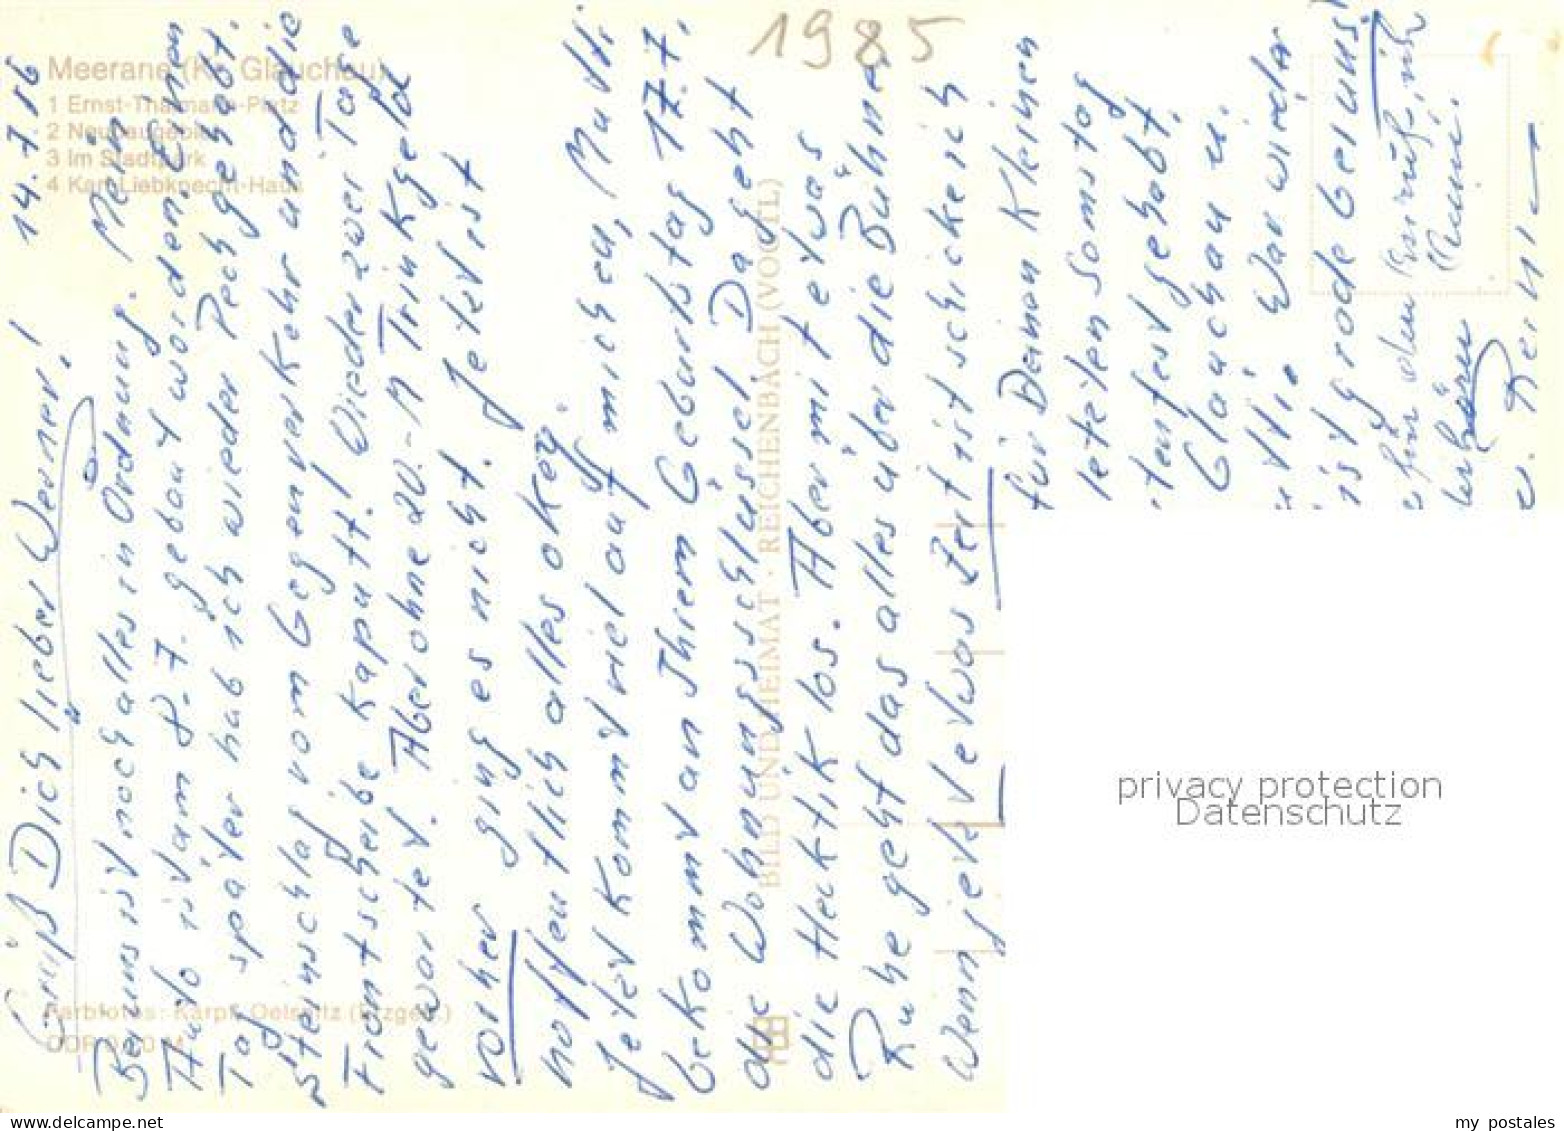 Meerane (Kr. Glauchau)
1 Ernst-Thälmann-Platz
2 Neubaugebiet
3 Im Stadtpark
4 Karl-Liebknecht-Haus
1985
14.7.
Grüß Dich lieber Werner!
Bei uns ist noch alles in Ordnung. Mein
Auto ist am 8.7. gebaut worden. Einen
Tag später hab ich wieder Pech gehabt.
Steinschlag vom Gegenverkehr und die
Frontscheibe kaputt! Wieder zwei Tage
gewartet. Aber ohne 20.-M Trinkgeld
vorher ging es nicht. Jetzt ist
hoffentlich alles okey.
Jetzt kommt viel auf mich zu, Mutti
bekommt an Ihrem Geburtstag 17.7.
die Wohnungsschlüssel. Da geht
die Hecktik los. Aber mit etwas
Ruhe geht das alles über die Bühne.
Wenn jetzt etwas Zeit ist schicke ich
für Deinen Kleinen
letzten Somstag
tenfest gehabt.
Glauchau u.
utti. War wieder
ist grade bei uns!
u.
Farbfotos: Karpf, Oelsnitz (Erzgeb.)
BILD UND HEIMAT · REICHENBACH (VOGTL)
privacy protection
Datenschutz
my postales